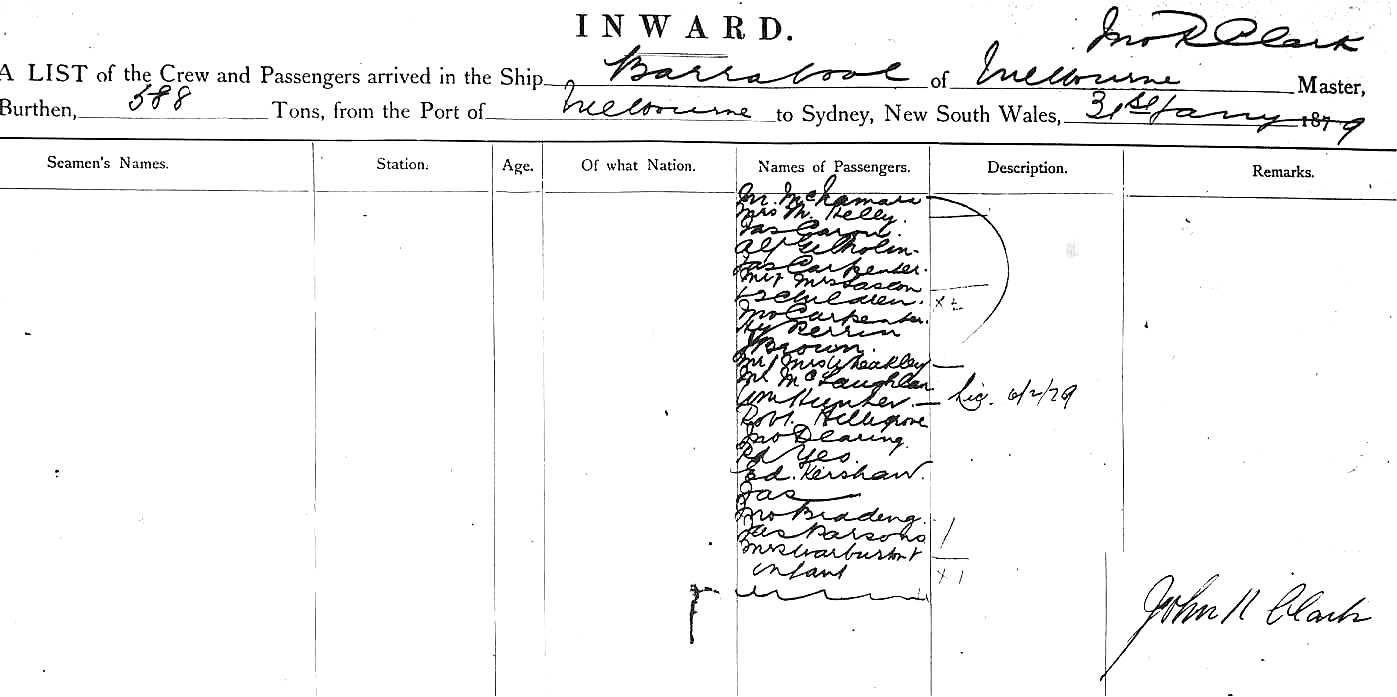 INWARD.
Jno R Clark
A LIST of the Crew and Passengers arrived in the Ship Barrabool of Melbourne Master,
Burthen, 588 Tons, from the Port of Melbourne to Sydney, New South Wales, 31st Jany 1879
Seamen's Names. Station. Age. Of what Nation. Names of Passengers. Description. Remarks.
Mr. McNamara
Mrs M. Kelly.
Jas
Alf
Jas Carpenter.
Mr & Mrs
children. x 2
Jno Carpenter.
Hy Perrin
J Brown.
Mr / Mrs Wheakley
Mr McLaughlan
Wm Hunter. 6/2/79
Robt. Hillsgrove
Jno Dearing.
Rd Yes.
Ed. Kershaw.
Jas
Jno Bradeng.
Jas Parsons
Mrs Warburton &
infant x 1
John R Clark